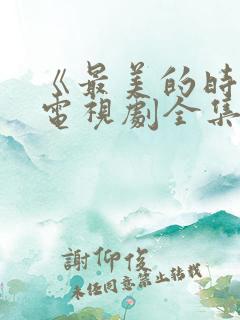 《最美的時
電視劇全集
謝仰俊
未任同意禁止转载